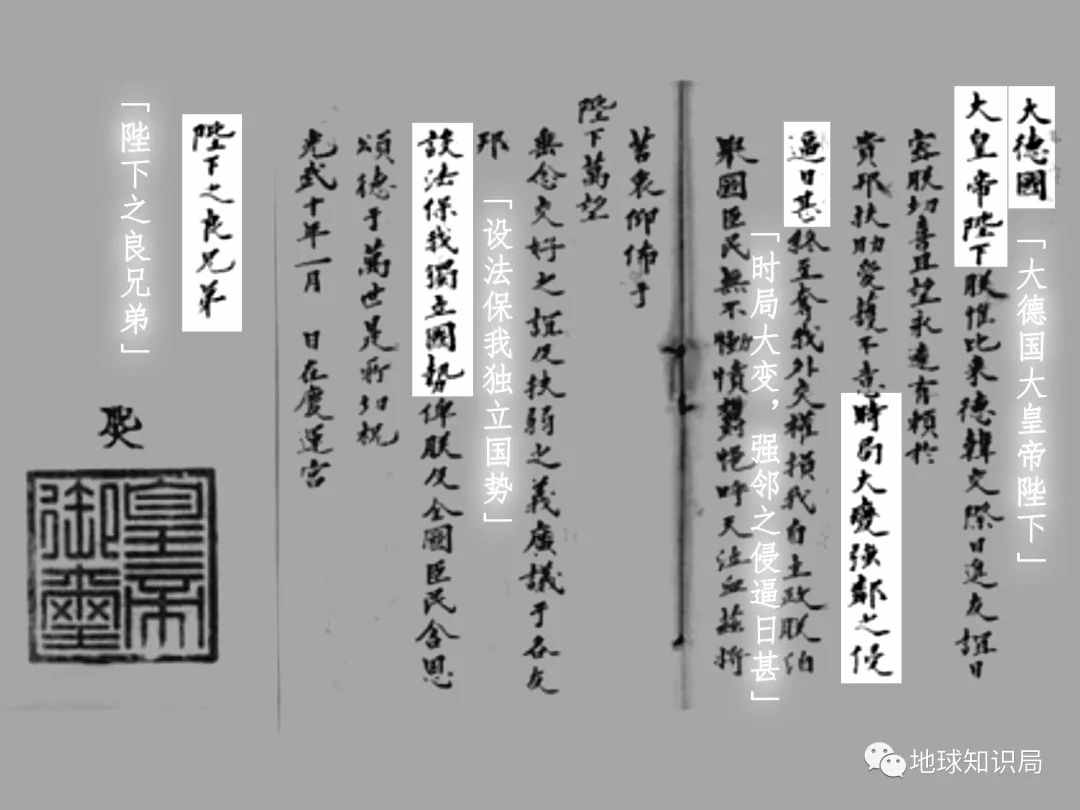 大德國
大皇帝陛下朕惟比來德韓交際日進友誼日
密朕切喜且望永遠有賴於
貴邦扶助愛護不意時局大變強鄰之侵
逼日甚終至奪我外交權損我自主政朕洎
國臣民無不慟憤鬱悒呼天泣血茲將
苦衷仰佈于
陛下萬望
無念交好之誼及扶弱之義廣議于各友
邦
設法保我獨立國勢俾朕及全國臣民含恩
頌德于萬世是所切祝
光武十年一月 日在慶運宮
陛下之良兄弟
皇帝
御璽
「大德国大皇帝陛下」
「时局大变，强邻之侵逼日甚」
「设法保我独立国势」
「陛下之良兄弟」
地球知识局